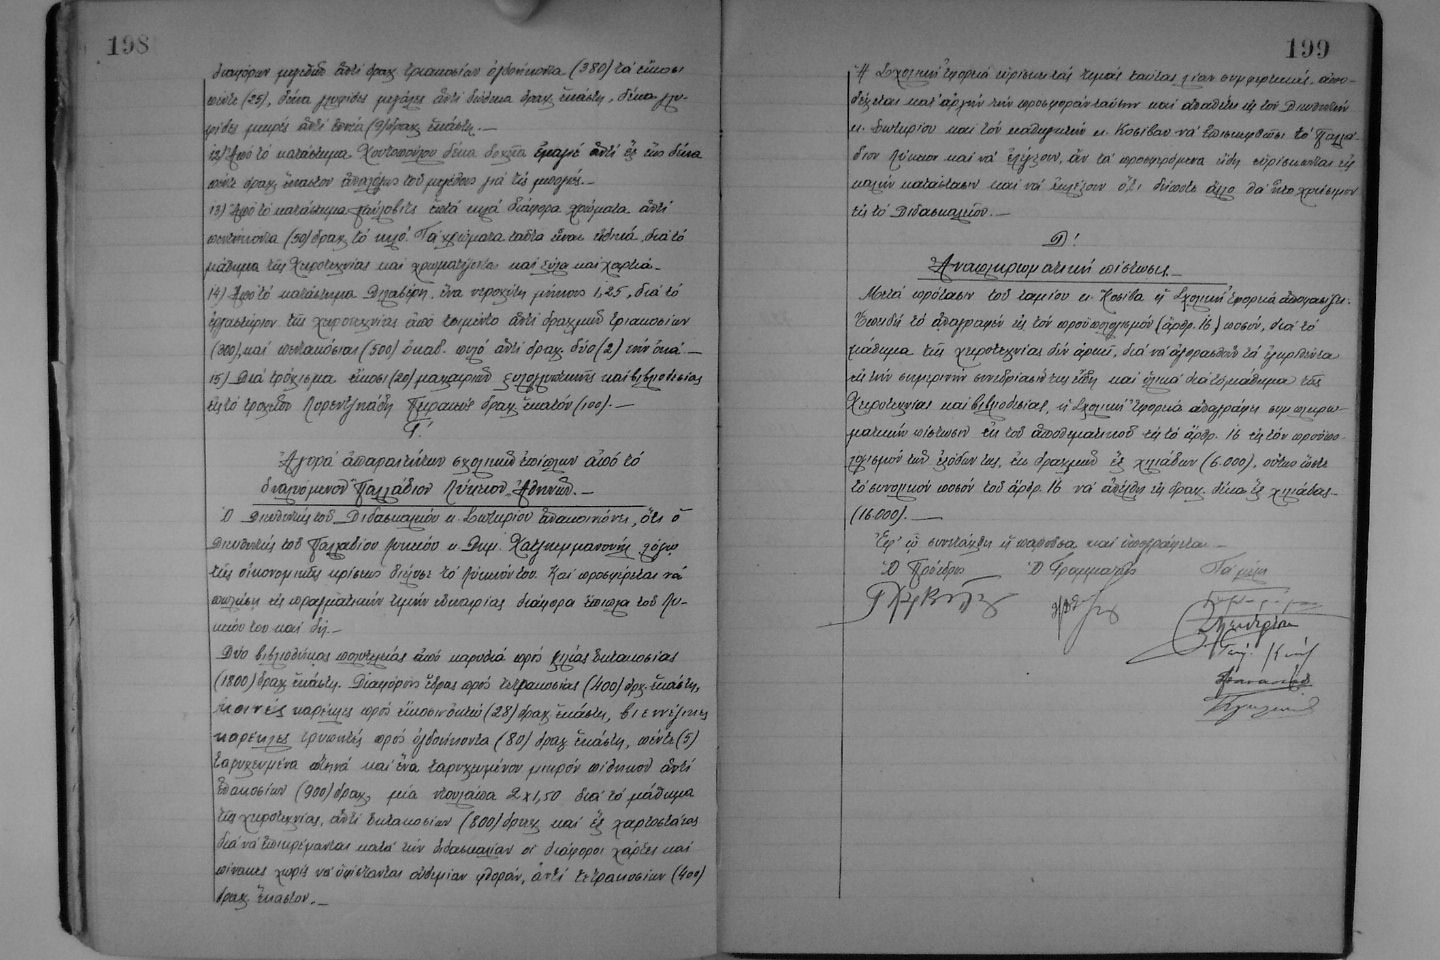 198
διαφόρων μεγεθῶν ἀντὶ δραχ. τριακοσίων ὀγδοήκοντα (380) τὰ εἴκοσι
πέντε (25), δέκα γλυφίδες μεγάλες ἀντὶ δώδεκα δραχ. ἑκάστη, δέκα γλυ-
φίδες μικρές ἀντὶ ἐννέα (9) δραχ. ἑκάστη.—
12) Ἀπὸ τὸ κατάστημα Χουτοπούλου δέκα δοχεῖα ἀντὶ ἓξ ἕως δέκα
πέντε δραχ. ἕκαστον ἀναλόγως τοῦ μεγέθους γιὰ τὶς μπογιές.—
13) Ἀπὸ τὸ κατάστημα Παύλοβιτς ἑπτὰ κιλὰ διάφορα χρώματα ἀντὶ
πεντήκοντα (50) δραχ. τὸ κιλό. Τὰ χρώματα ταῦτα εἶναι εἰδικά, διὰ τὸ
μάθημα τῆς Χειροτεχνίας καὶ χρωματίζονται καὶ ξύλα καὶ χαρτιά.—
14) Ἀπὸ τὸ κατάστημα Δελαβέρη, ἕνα νεροχύτη μήκους 1,25, διὰ τὸ
ἐργαστήριον τῆς χειροτεχνίας ἀπὸ τσιμέντο ἀντὶ δραχμῶν τριακοσίων
(300), καὶ πεντακόσιας (500) ὀκάδ. πηλὸ ἀντὶ δραχ. δύο (2) τὴν ὀκᾶ.—
15) Διὰ τρόχισμα εἴκοσι (20) μαχαιριῶν ξυλογλυπτικῆς καὶ βιβλιοδεσίας
εἰς τὸ τροχεῖον Λορεντζιάδη Πειραιῶς δραχ. ἑκατόν (100).—
Γ!
Ἀγορὰ ἀπαραιτήτων σχολικῶν ἐπίπλων ἀπὸ τὸ
διαλυόμενον "Παλλάδιον Λύκειον" Ἀθηνῶν.—
Ὁ Διευθυντὴς τοῦ Διδασκαλείου κ. Σωτηρίου ἀνακοινώνει, ὅτι ὁ
Διευθυντὴς τοῦ Παλλαδίου Λυκείου κ. Δημ. Χατζηεμμανουὴλ λόγῳ
τῆς οἰκονομικῆς κρίσεως διέλυσε τὸ Λύκειόν του. Καὶ προσφέρεται νὰ
πωλήσῃ εἰς πραγματικὴν τιμὴν εὐκαιρίας διάφορα ἔπιπλα τοῦ Λυ-
κείου του καὶ δή.—
Δύο βιβλιοθήκας πολυτελείας ἀπὸ καρυδιὰ πρὸς χιλίας ὀκτακοσίας
(1800) δραχ. ἑκάστη. Διαφόρους ἕδρας πρὸς τετρακοσίας (400) δρχ. ἑκάστη,
κοινὲς καρέκλες πρὸς εἴκοσι ὀκτώ (28) δραχ. ἑκάστη, βιεννέζικες
καρέκλες τρυπητές πρὸς ὀγδοήκοντα (80) δραχ. ἑκάστη, πέντε (5)
ταριχευμένα πτηνὰ καὶ ἕνα ταριχευμένον μικρὸν πίθηκον ἀντὶ
ἐννακοσίων (900) δραχ., μία ντουλάπα 2×1,50 διὰ τὸ μάθημα
τῆς χειροτεχνίας, ἀντὶ ὀκτακοσίων (800) δραχ. καὶ ἓξ χαρτοστάτας
διὰ νὰ ἐπικρέμανται κατὰ τὴν διδασκαλίαν οἱ διάφοροι χάρτες καὶ
πίνακες χωρὶς νὰ ὑφίστανται οὐδεμίαν φθοράν, ἀντὶ τετρακοσίων (400)
δραχ. ἕκαστον.—
199
Ἡ Σχολικὴ Ἐφορεία εὑρίσκει τὰς τιμὰς ταύτας λίαν συμφερτικάς, ἀπο-
δέχεται κατ' ἀρχὴν τὴν προσφορὰν ταύτην καὶ ἀναθέτει εἰς τὸν Διευθυντὴν
κ. Σωτηρίου καὶ τὸν καθηγητὴν κ. Κοσίβαν νὰ ἐπισκεφθῶσι τὸ Παλλά-
διον Λύκειον καὶ νὰ ἐλέγξουν, ἂν τὰ προσφερόμενα εἴδη εὑρίσκονται εἰς
καλὴν κατάστασιν καὶ νὰ ἐκλέξουν ὅ,τι δήποτε ἄλλο θὰ ἦτο χρήσιμον
εἰς τὸ Διδασκαλεῖον.—
Δ!
Ἀναπληρωματικὴ πίστωσις.—
Μετὰ πρότασιν τοῦ ταμίου κ. Κοσίβα ἡ Σχολικὴ Ἐφορεία ἀποφασίζει.
Ἐπειδὴ τὸ ἀναγραφὲν εἰς τὸν προϋπολογισμόν (ἄρθρ. 16) ποσόν, διὰ τὸ
μάθημα τῆς χειροτεχνίας δὲν ἀρκεῖ, διὰ νὰ ἀγορασθοῦν τὰ ἐγκριθέντα
εἰς τὴν σημερινὴν συνεδρίασίν της εἴδη καὶ ὑλικὰ διὰ τὸ μάθημα τῆς
Χειροτεχνίας καὶ βιβλιοδεσίας, ἡ Σχολικὴ Ἐφορεία ἀναγράφει συμπληρω-
ματικὴν πίστωσιν ἐκ τοῦ ἀποθεματικοῦ εἰς τὸ ἄρθρ. 16 εἰς τὸν προϋπο-
λογισμὸν τῶν ἐξόδων της, ἐκ δραχμῶν ἓξ χιλιάδων (6.000), οὕτως ὥστε
τὸ συνολικὸν ποσὸν τοῦ ἄρθρ. 16 νὰ ἀνέλθῃ εἰς δραχ. δέκα ἓξ χιλιάδας.—
(16.000).—
Ἐφ' ᾧ συνετάχθη ἡ παροῦσα καὶ ὑπογράφεται.—
Ὁ Πρόεδρος Ὁ Γραμματεὺς Τὰ μέλη